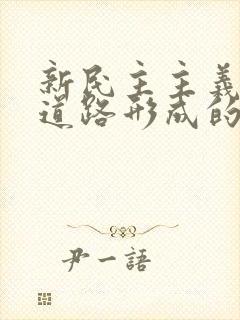 新民主主義
道路形成的
尹一語